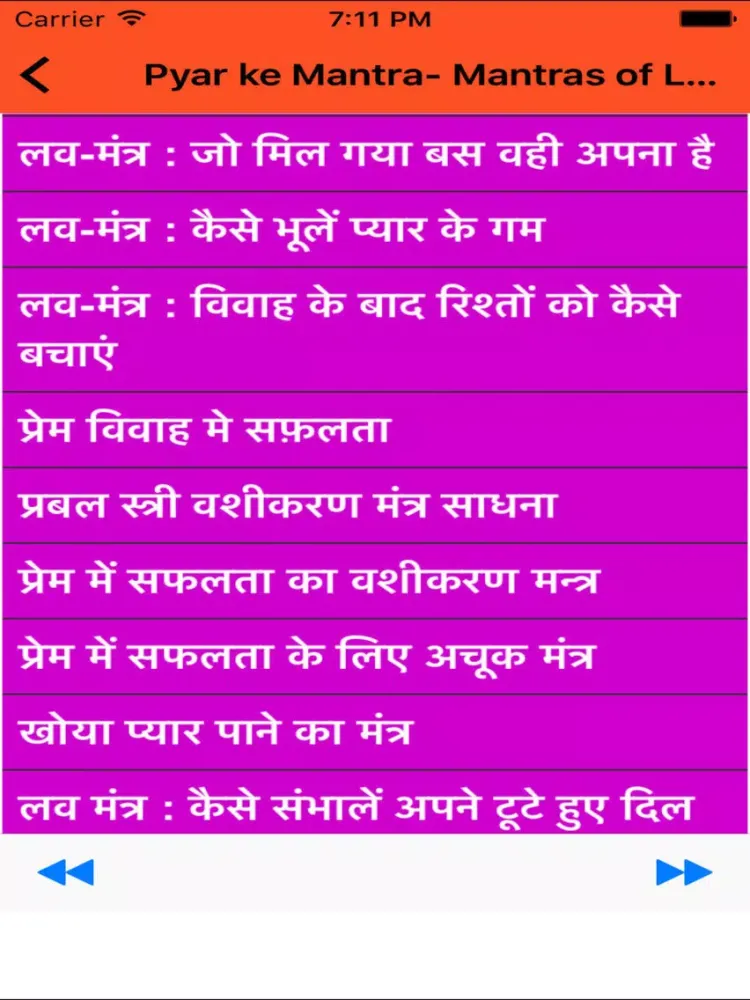 Carrier 7:11 PM
Pyar ke Mantra- Mantras of L...
लव-मंत्र : जो मिल गया बस वही अपना है
लव-मंत्र : कैसे भूलें प्यार के गम
लव-मंत्र : विवाह के बाद रिश्तों को कैसे
बचाएं
प्रेम विवाह मे सफ़लता
प्रबल स्त्री वशीकरण मंत्र साधना
प्रेम में सफलता का वशीकरण मन्त्र
प्रेम में सफलता के लिए अचूक मंत्र
खोया प्यार पाने का मंत्र
लव मंत्र : कैसे संभालें अपने टूटे हुए दिल